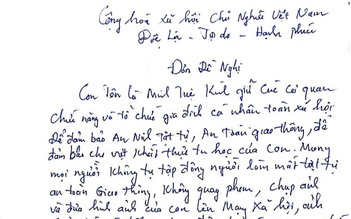 Cộng hoà xã hội Chủ Nghĩa Việt Nam
Độc Lập - Tự do - Hạnh phúc
Đơn Đề Nghị
Con Tên là Minh Tuệ Kính gửi các cơ quan
chức năng và tổ chức gia đình cá nhân toàn xã hội
Để đảm bảo An Ninh trật tự, An toàn giao thông, để
đảm bảo cho việc khất thực tu học của con. Mong
mọi người Không tụ tập đông người làm mất trật tự
an toàn Giao thông, Không quay phim, chụp ảnh
và đưa hình ảnh của con lên Mạng Xã hội, ảnh